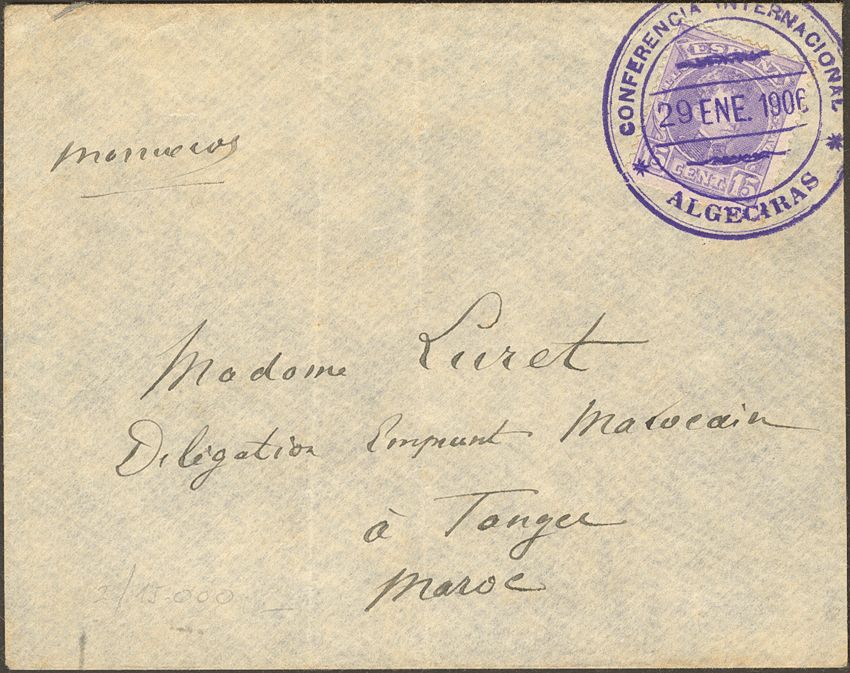 CONFERENCIA INTERNACIONAL
29 ENE. 1906
* ALGECIRAS *
ESPAÑA
CENT. 15
Marruecos
Madame Luret
Délégation Emprunt Marocain
à Tanger
Maroc
2/15.000